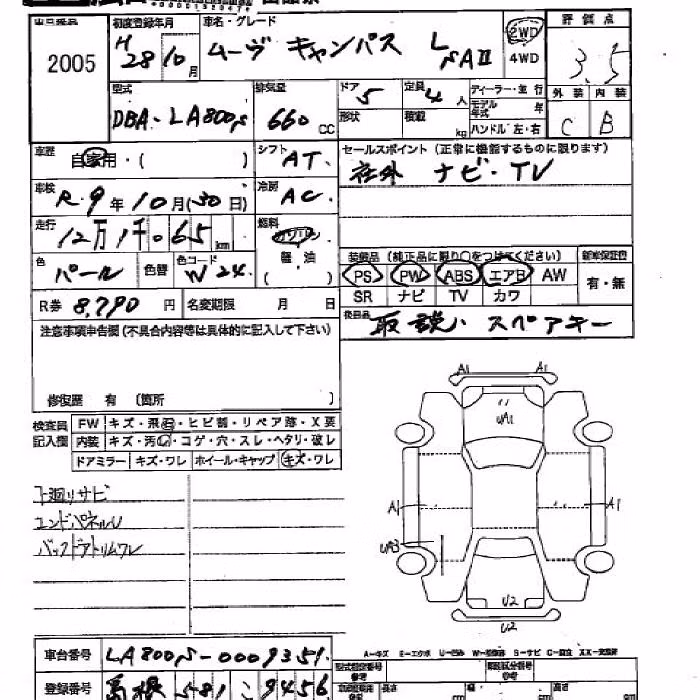 出品番号 初度登録年月 車名・グレード 評価点
2005 H28 10月 ムーヴ キャンバス L SAⅡ 2WD 4WD 3.5
型式 排気量 ドア 定員 ディーラー・並行 外装 内装
DBA-LA800S 660CC 5 4人 モデル年式 年 C B
形状 積載 kg ハンドル 左・右
車歴 自家用・( ) シフト AT セールスポイント (正常に機能するものに限ります)
社外 ナビ・TV
車検 R.9年10月(30日) 冷房 AC
走行 12万1千065km 燃料 ガソリン
軽油
( )
装備品 (純正品に限り○をつけてください) 新車保証書
色 パール 色替 色コード W24 PS PW ABS エアB AW 有・無
SR ナビ TV カワ
R券 8,790円 名変期限 月 日 後日品 取説、スペアキー
注意事項申告欄 (不具合内容等は具体的に記入して下さい)
修復歴 有 (箇所 )
検査員記入欄 FW キズ・飛石・ヒビ割・リペア跡・X要
内装 キズ・汚レ・コゲ・穴・スレ・ヘタリ・破レ
ドアミラー キズ・ワレ ホイール・キャップ キズ・ワレ
下廻りサビ
エンドパネルU
バックドアトリムワレ
A1 A1
UA1
A1 A1
UA3
U2
U2
A-キズ E-エクボ U-凹み S-サビ C-腐食 XX-交換済
車台番号 LA800S-0009351
型式指定番号 類別区分番号
登録番号 581 こ 9456 長さ cm 幅 cm 高さ cm